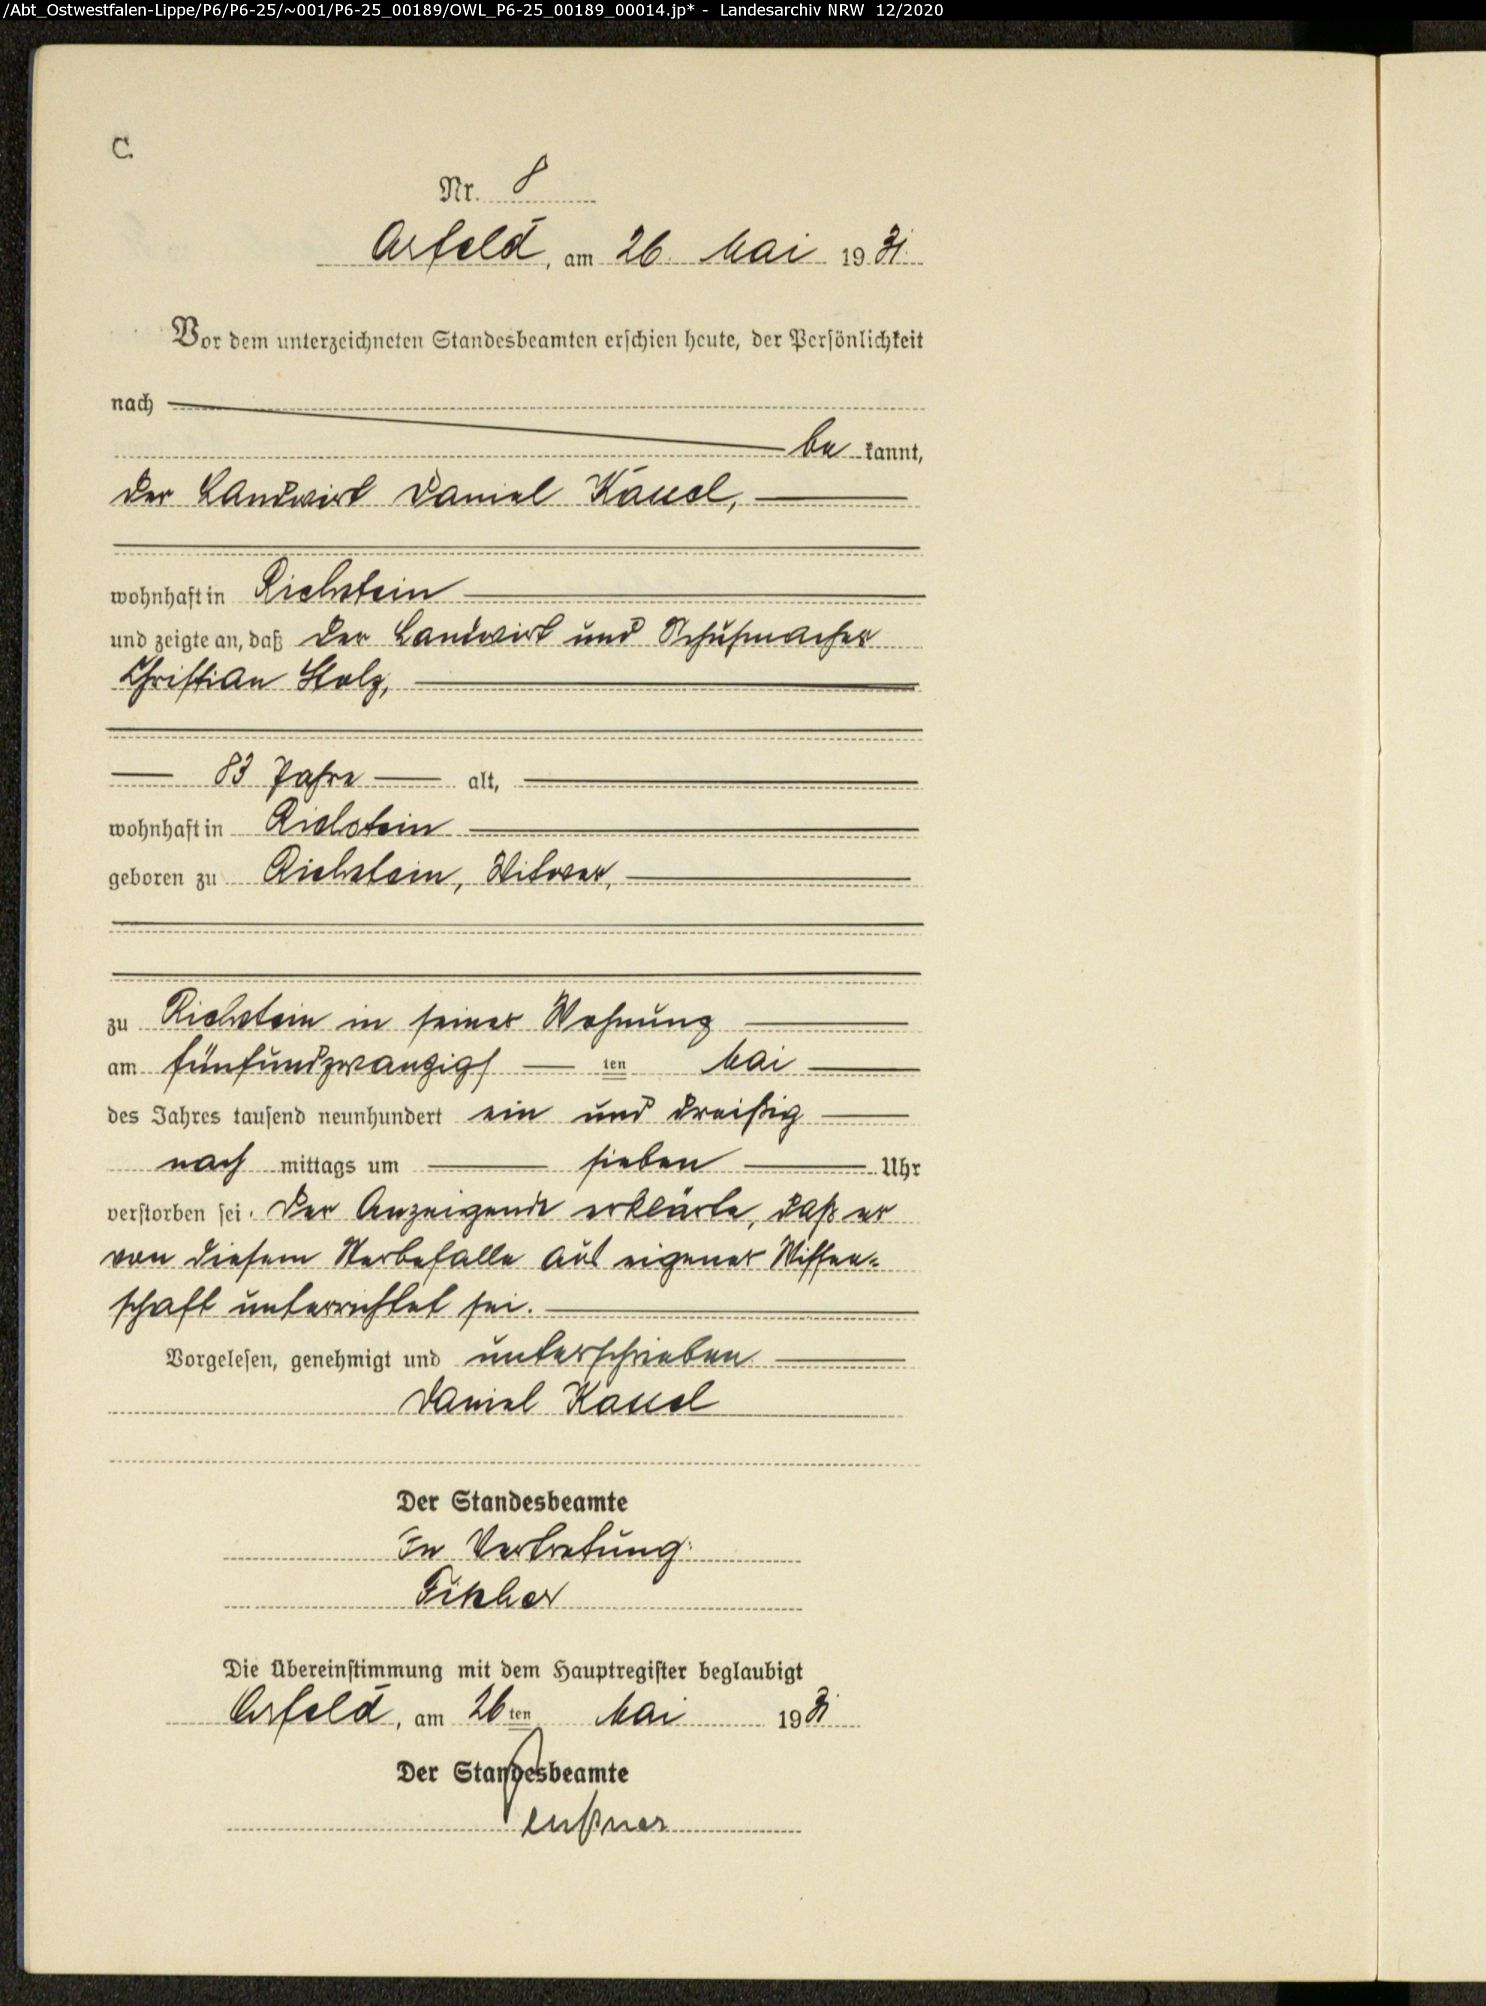 /Abt_Ostwestfalen-Lippe/P6/P6-25/~001/P6-25_00189/OWL_P6-25_00189_00014.jp* - Landesarchiv NRW 12/2020
C.
Nr. 8
Arfeld, am 26. Mai 1931.
Vor dem unterzeichneten Standesbeamten erschien heute, der Persönlichkeit
nach
be kannt,
der Landwirt Daniel Kassel,
wohnhaft in Richstein
und zeigte an, daß der Landwirt und Schuhmacher
Christian Stolz,
83 Jahre alt,
wohnhaft in Richstein
geboren zu Richstein, Witwer,
zu Richstein in seiner Wohnung
am fünfundzwanzigs ten Mai
des Jahres tausend neunhundert ein und dreißig
nach mittags um sieben Uhr
verstorben sei. Der Anzeigende erklärte, daß er
von diesem Sterbefalle aus eigener Wissen=
schaft unterrichtet sei.
Vorgelesen, genehmigt und unterschrieben
Daniel Kassel
Der Standesbeamte
In Vertretung:
Die Übereinstimmung mit dem Hauptregister beglaubigt
Arfeld, am 26ten Mai 1931
Der Standesbeamte